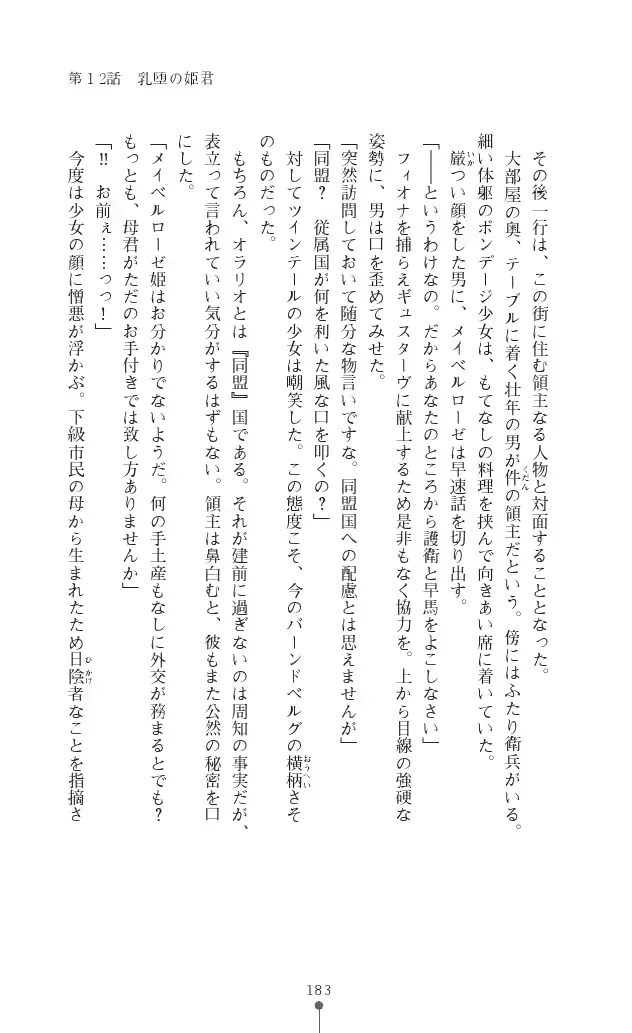 第１２話　乳堕の姫君
その後一行は、この街に住む領主なる人物と対面することとなった。
大部屋の奥、テーブルに着く壮年の男が件の領主だという。傍にはふたり衛兵がいる。
細い体躯のボンデージ少女は、もてなしの料理を挟んで向きあい席に着いていた。
厳つい顔をした男に、メイベルローゼは早速話を切り出す。
「――というわけなの。だからあなたのところから護衛と早馬をよこしなさい」
フィオナを捕らえギュスターヴに献上するため是非もなく協力を。上から目線の強硬な
姿勢に、男は口を歪めてみせた。
「突然訪問しておいて随分な物言いですな。同盟国への配慮とは思えませんが」
「同盟？　従属国が何を利いた風な口を叩くの？」
対してツインテールの少女は嘲笑した。この態度こそ、今のバーンドベルグの横柄さそ
のものだった。
もちろん、オラリオとは『同盟』国である。それが建前に過ぎないのは周知の事実だが、
表立って言われていい気分がするはずもない。領主は鼻白むと、彼もまた公然の秘密を口
にした。
「メイベルローゼ姫はお分かりでないようだ。何の手土産もなしに外交が務まるとでも？
もっとも、母君がただのお手付きでは致し方ありませんか」
「!!　お前ぇ……っっ！」
今度は少女の顔に憎悪が浮かぶ。下級市民の母から生まれたため日陰者なことを指摘さ
183